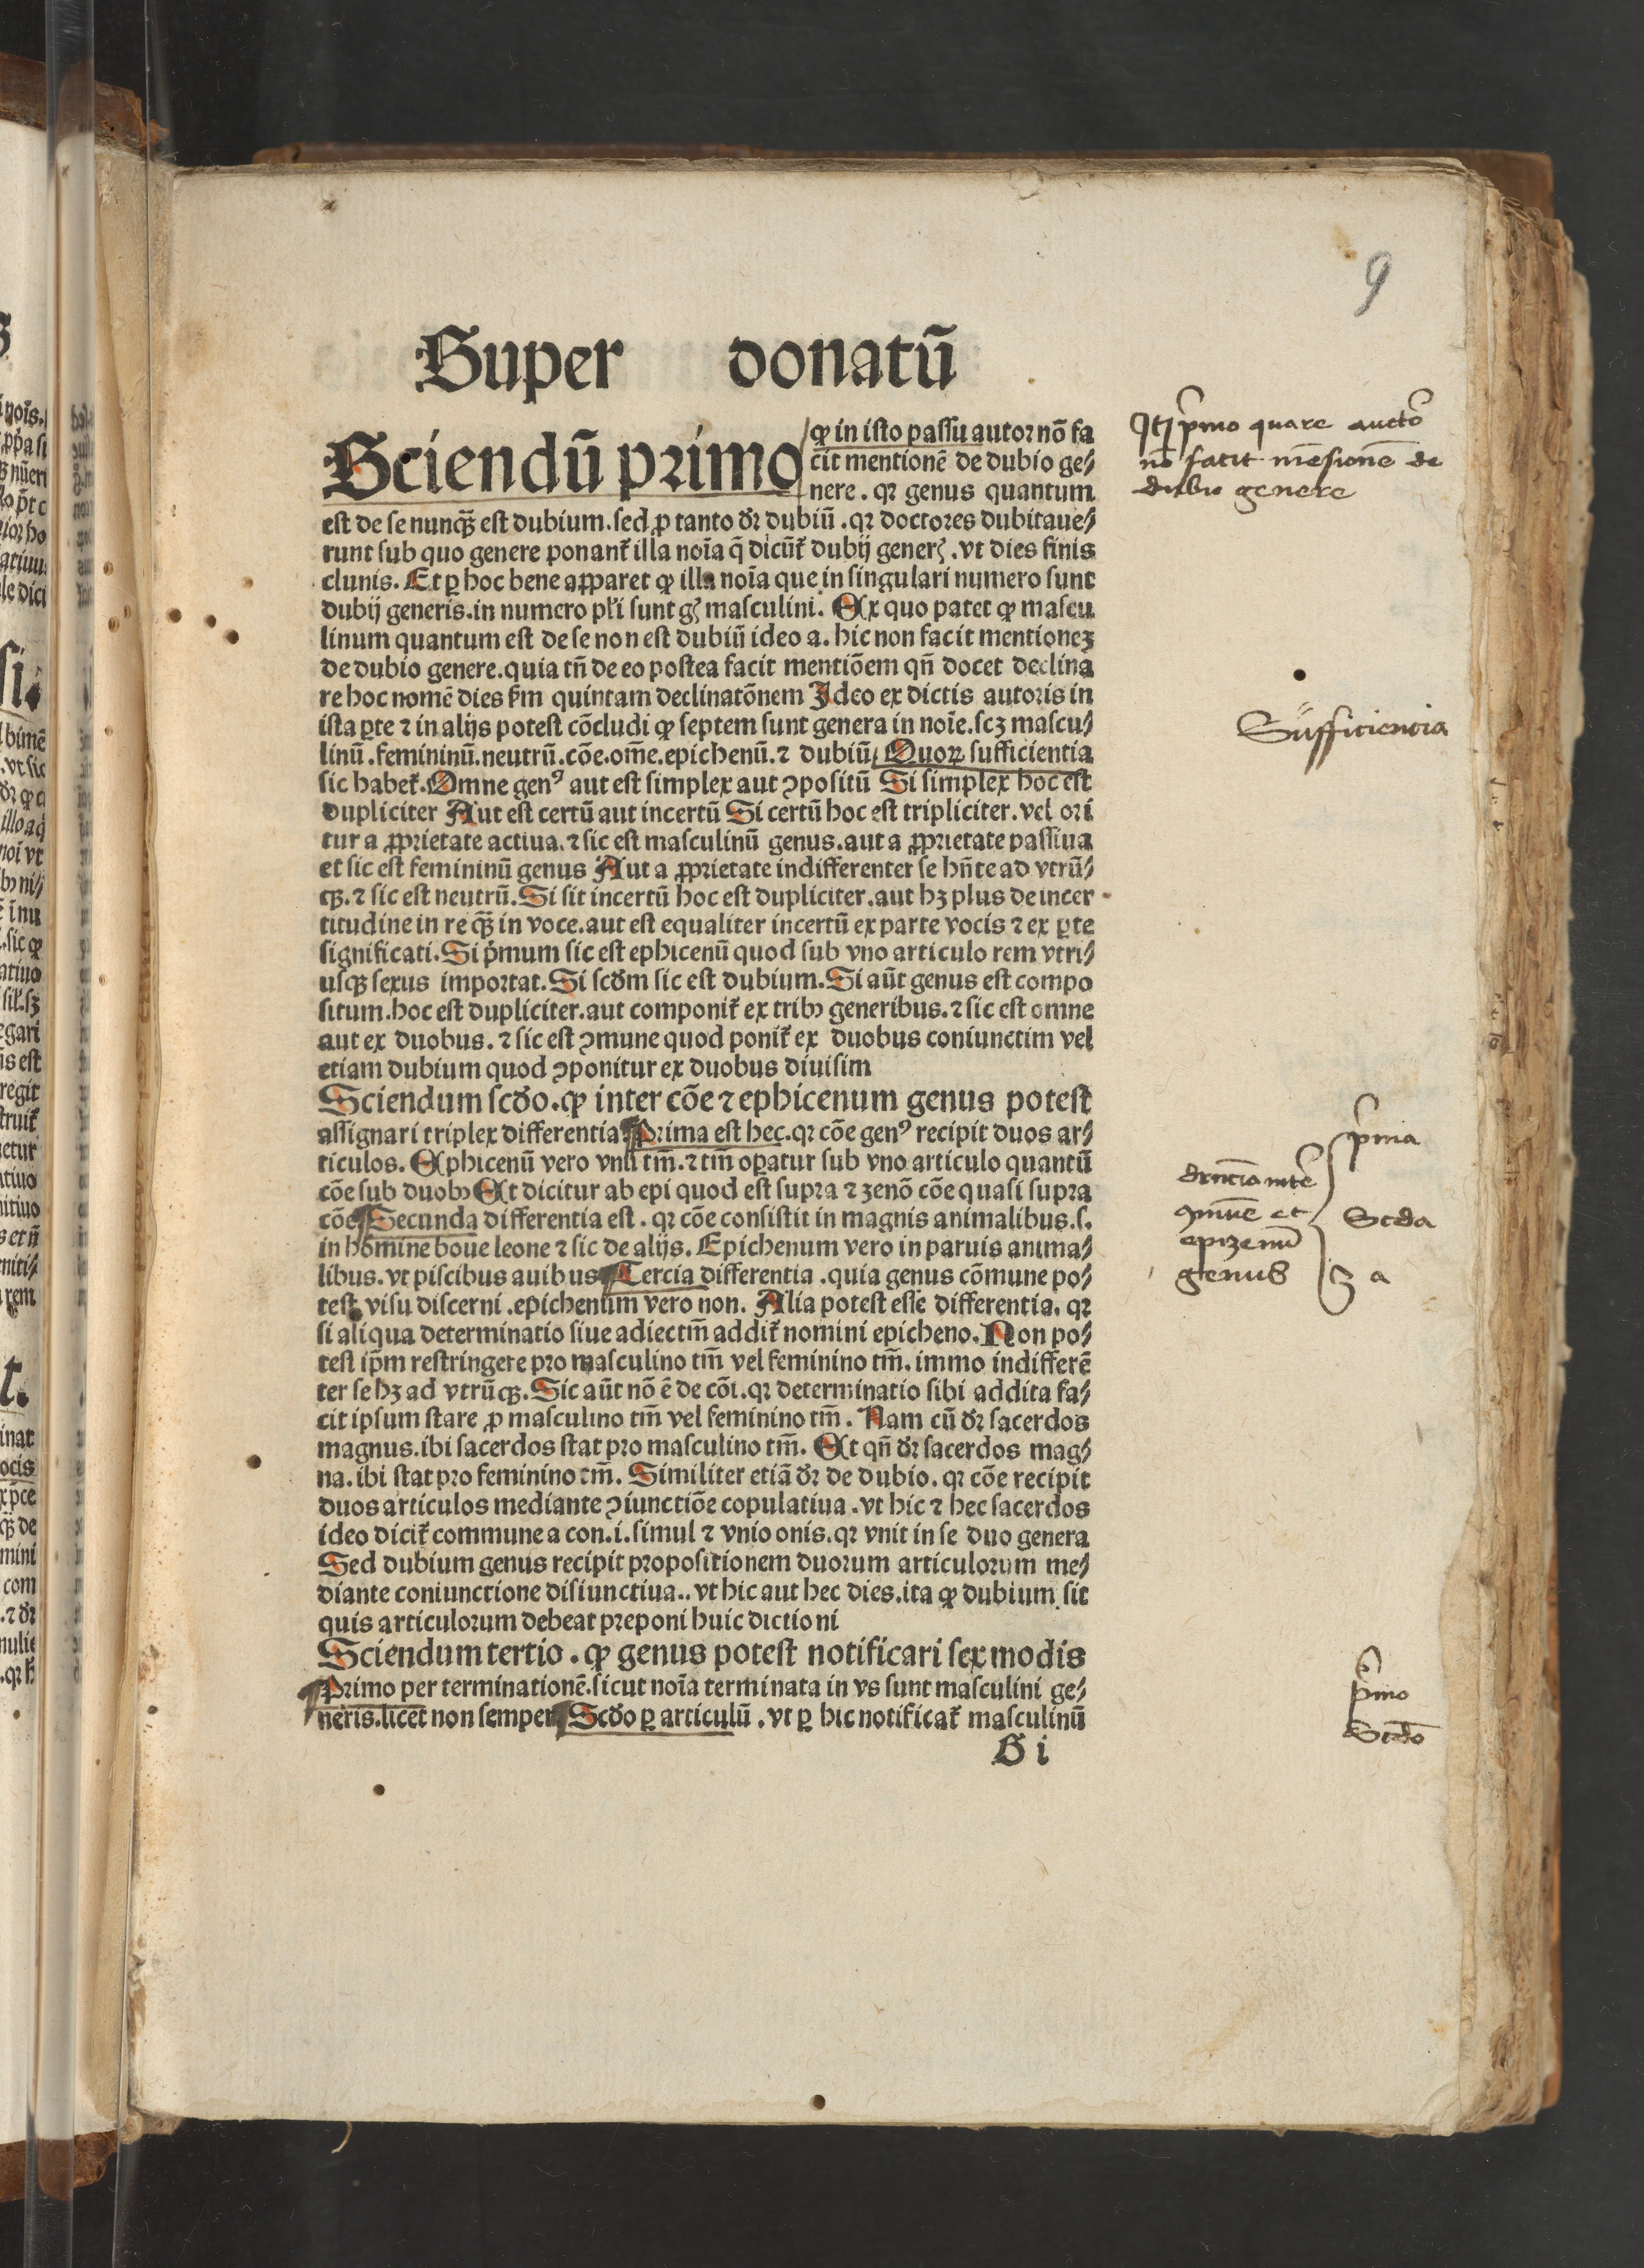 9
Super donatū
Sciendū primo
ꝙ in isto passu autor nō fa
cit mentionē de dubio ge⸗
nere. qꝛ genus quantum
est de se nunꝗ̈ est dubium. sed ꝓ tanto dꝛ dubiū. qꝛ doctores dubitaue⸗
runt sub quo genere ponant᷑ illa noīa q̄ dicūt᷑ dubij generꝭ. vt dies finis
clunis. Et ꝑ hoc bene apparet ꝙ illa noīa que in singulari numero sunt
dubij generis. in numero pl̄i sunt gꝭ masculini. Ex quo patet ꝙ mascu
linum quantum est de se non est dubiū ideo a. hic non facit mentioneꝫ
de dubio genere. quia tn̄ de eo postea facit mentiōem qn̄ docet declina
re hoc nomē dies ẜm quintam declinatōnem Ideo ex dictis autoris in
ista ꝑte ⁊ in alijs potest cōcludi ꝙ septem sunt genera in noīe. scꝫ mascu⸗
linū. femininū. neutrū. cōe. om̄e. epichenū. ⁊ dubiū/ Quoꝝ sufficientia
sic habet᷑. Omne genꝰ aut est simplex aut ꝯpositū Si simplex hoc est
dupliciter Aut est certū aut incertū Si certū hoc est tripliciter. vel ori
tur a ꝓprietate actiua. ⁊ sic est masculinū genus. aut a ꝓprietate passiua
et sic est femininū genus Aut a ꝓprietate indifferenter se hn̄te ad vtrū⸗
qꝫ. ⁊ sic est neutrū. Si sit incertū hoc est dupliciter. aut hꝫ plus de incer
titudine in re ꝗ̈ in voce. aut est equaliter incertū ex parte vocis ⁊ ex ꝑte
significati. Si pͥmum sic est ephicenū quod sub vno articulo rem vtri⸗
usqꝫ sexus importat. Si scd̓m sic est dubium. Si aūt genus est compo
situm. hoc est dupliciter. aut componit᷑ ex tribꝰ generibus. ⁊ sic est omne
aut ex duobus. ⁊ sic est ꝯmune quod ponit᷑ ex duobus coniunctim vel
etiam dubium quod ꝯponitur ex duobus diuisim
Sciendum scd̓o. ꝙ inter cōe ⁊ ephicenum genus potest
assignari triplex differentia. Prima est hec. qꝛ cōe genꝰ recipit duos ar⸗
ticulos. Ephicenū vero vnū tm̄. ⁊ tm̄ oꝑatur sub vno articulo quantū
cōe sub duobꝰ Et dicitur ab epi quod est supra ⁊ zenō cōe quasi supra
cōe Secunda differentia est. qꝛ cōe consistit in magnis animalibus. s.
in homine boue leone ⁊ sic de alijs. Epichenum vero in paruis anima⸗
libus. vt piscibus auibus Tercia differentia. quia genus cōmune po⸗
test visu discerni. epichenum vero non. Alia potest esse differentia. qꝛ
si aliqua determinatio siue adiectm̄ addit᷑ nomini epicheno. Non po⸗
test ip̄m restringere pro masculino tm̄ vel feminino tm̄. immo indifferē
ter se hꝫ ad vtrūqꝫ. Sic aūt nō ē de cōi. qꝛ determinatio sibi addita fa⸗
cit ipsum stare ꝓ masculino tm̄ vel feminino tm̄. Nam cū dꝛ sacerdos
magnus. ibi sacerdos stat pro masculino tm̄. Et qn̄ dꝛ sacerdos mag⸗
na. ibi stat pro feminino tm̄. Similiter etiā dꝛ de dubio. qꝛ cōe recipit
duos articulos mediante ꝯiunctiōe copulatiua. vt hic ⁊ hec sacerdos
ideo dicit᷑ commune a con. i. simul ⁊ vnio onis. qꝛ vnit in se duo genera
Sed dubium genus recipit propositionem duorum articulorum me⸗
diante coniunctione disiunctiua.. vt hic aut hec dies. ita ꝙ dubium sit
quis articulorum debeat preponi huic dictioni
Sciendum tertio. ꝙ genus potest notificari sex modis
Primo per terminationē. sicut noīa terminata in vs sunt masculini ge⸗
neris. licet non semper Scd̓o ꝑ articulū. vt ꝑ hic notificat᷑ masculinū
B i
pͥmo quare aucto
nō facit mēsionē de
dubio genere
Sufficiencia
pͥma
ꝯmūe et
epizenū
genus
Scd̓a
3 a
pͥmo
Scdō